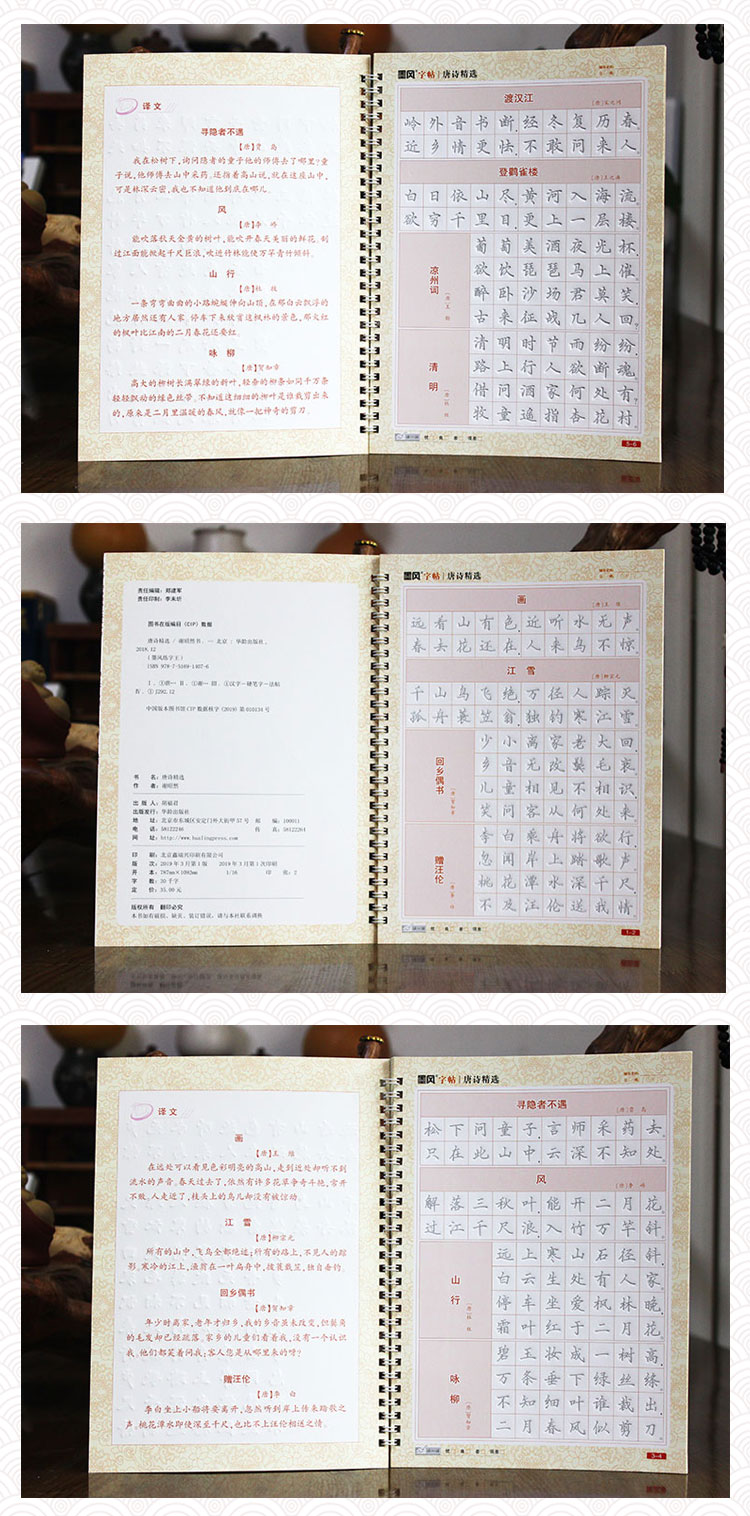 译文
寻隐者不遇
【唐】贾 岛
我在松树下,询问隐者的童子他的师傅去了哪里?童
子说,他师傅去山中采药。还指着高山说,就在这座山中,
可是林深云密,我也不知道他到底在哪儿。
风
【唐】李 峤
能吹落秋天金黄的树叶,能吹开春天美丽的鲜花。刮
过江面能掀起千尺巨浪,吹进竹林能使万竿青竹倾斜。
山 行
【唐】杜 牧
一条弯弯曲曲的小路蜿蜒伸向山顶,在那白云飘浮的
地方居然还有人家。停车下来欣赏这枫林的景色,那火红
的枫叶比江南的二月春花还要红。
咏 柳
【唐】贺知章
高大的柳树长满翠绿的新叶,轻垂的柳条如同千万条
轻轻飘动的绿色丝带。不知道这细细的柳叶是谁裁剪出来
的,原来是二月里温暖的春风,就像一把神奇的剪刀。
墨风字帖 唐诗精选
渡汉江
〔唐〕宋之问
岭外音书断,经冬复历春
近乡情更怯,不敢问来人
登鹳雀楼
〔唐〕王之涣
白日依山尽,黄河入海流
欲穷千里目,更上一层楼
凉州词
〔唐〕王 翰
葡萄美酒夜光杯
欲饮琵琶马上催
醉卧沙场君莫笑
古来征战几人回
清 明
〔唐〕杜 牧
清明时节雨纷纷
路上行人欲断魂
借问酒家何处有
牧童遥指杏花村
5-6
责任编辑:郑建军
责任印制:李未圻
图书在版编目(CIP)数据
唐诗精选 / 谢昭然书. -- 北京 : 华龄出版社,
2018.12
(墨风练字王)
ISBN 978-7-5169-1407-6
中国版本图书馆CIP数据核字(2019)第010134号
书 名:唐诗精选
作 者:谢昭然
出 版 人:胡福君
出版发行:华龄出版社
地 址:北京市东城区安定门外大街甲57号 邮 编:100011
电 话:58122246 传 真:58122264
网 址:http://www.hualingpress.com
印 刷:北京鑫瑞兴印刷有限公司
版 次:2019年3月第1版 2019年3月第1次印刷
开 本:787mm×1092mm 1/16 印 张:2
字 数:20千字
定 价:35.00元
版权所有 翻印必究
本书如有破损、缺页、装订错误,请与本社联系调换
墨风字帖 唐诗精选
画
〔唐〕王 维
远看山有色,近听水无声
春去花还在,人来鸟不惊
江 雪
〔唐〕柳宗元
千山鸟飞绝,万径人踪灭
孤舟蓑笠翁,独钓寒江雪
回乡偶书
〔唐〕贺知章
少小离家老大回
乡音无改鬓毛衰
儿童相见不相识
笑问客从何处来
赠汪伦
〔唐〕李 白
李白乘舟将欲行
忽闻岸上踏歌声
桃花潭水深千尺
不及汪伦送我情
1-2
译文
画
【唐】王 维
在远处可以看见色彩明亮的高山,走到近处却听不到
流水的声音。春天过去了,依然有许多花草争奇斗艳,常开
不败。人走近了,枝头上的鸟儿却没有被惊动。
江 雪
【唐】柳宗元
所有的山中,飞鸟全都绝迹;所有的路上,不见人的踪
影。寒冷的江上,渔翁在一叶扁舟中,披蓑戴笠,独自垂钓。
回乡偶书
【唐】贺知章
年少时离家,老年才归乡,我的乡音虽未改变,但鬓角
的毛发却已经疏落。家乡的儿童们看着我,没有一个认识
我。他们都笑着问我:客人您是从哪里来的呀?
赠汪伦
【唐】李 白
李白坐上小船将要离开,忽然听到岸上传来踏歌之
声。桃花潭水即使深至千尺,也比不上汪伦相送之情。
墨风字帖 唐诗精选
寻隐者不遇
〔唐〕贾 岛
松下问童子,言师采药去
只在此山中,云深不知处
风
〔唐〕李 峤
解落三秋叶,能开二月花
过江千尺浪,入竹万竿斜
山 行
〔唐〕杜 牧
远上寒山石径斜
白云生处有人家
停车坐爱枫林晚
霜叶红于二月花
咏 柳
〔唐〕贺知章
碧玉妆成一树高
万条垂下绿丝绦
不知细叶谁裁出
二月春风似剪刀
3-4